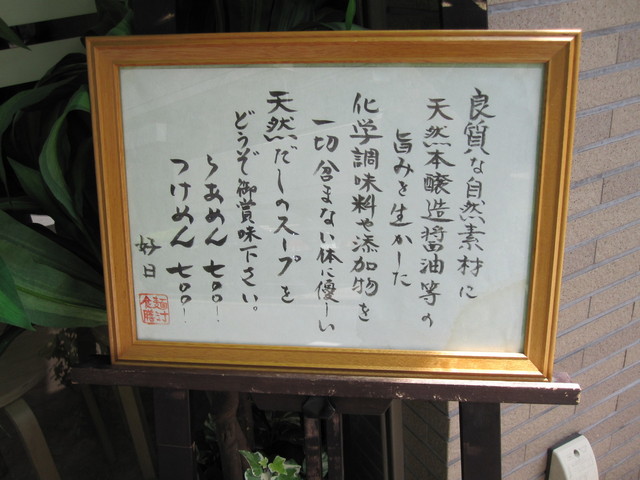 良質な自然素材に
天然本醸造醤油等の
旨みを生かした
化学調味料や添加物を
一切含まない体に優しい
天然だしのスープを
どうぞ御賞味下さい。
らあめん 七〇〇!
つけめん 七〇〇!
好日